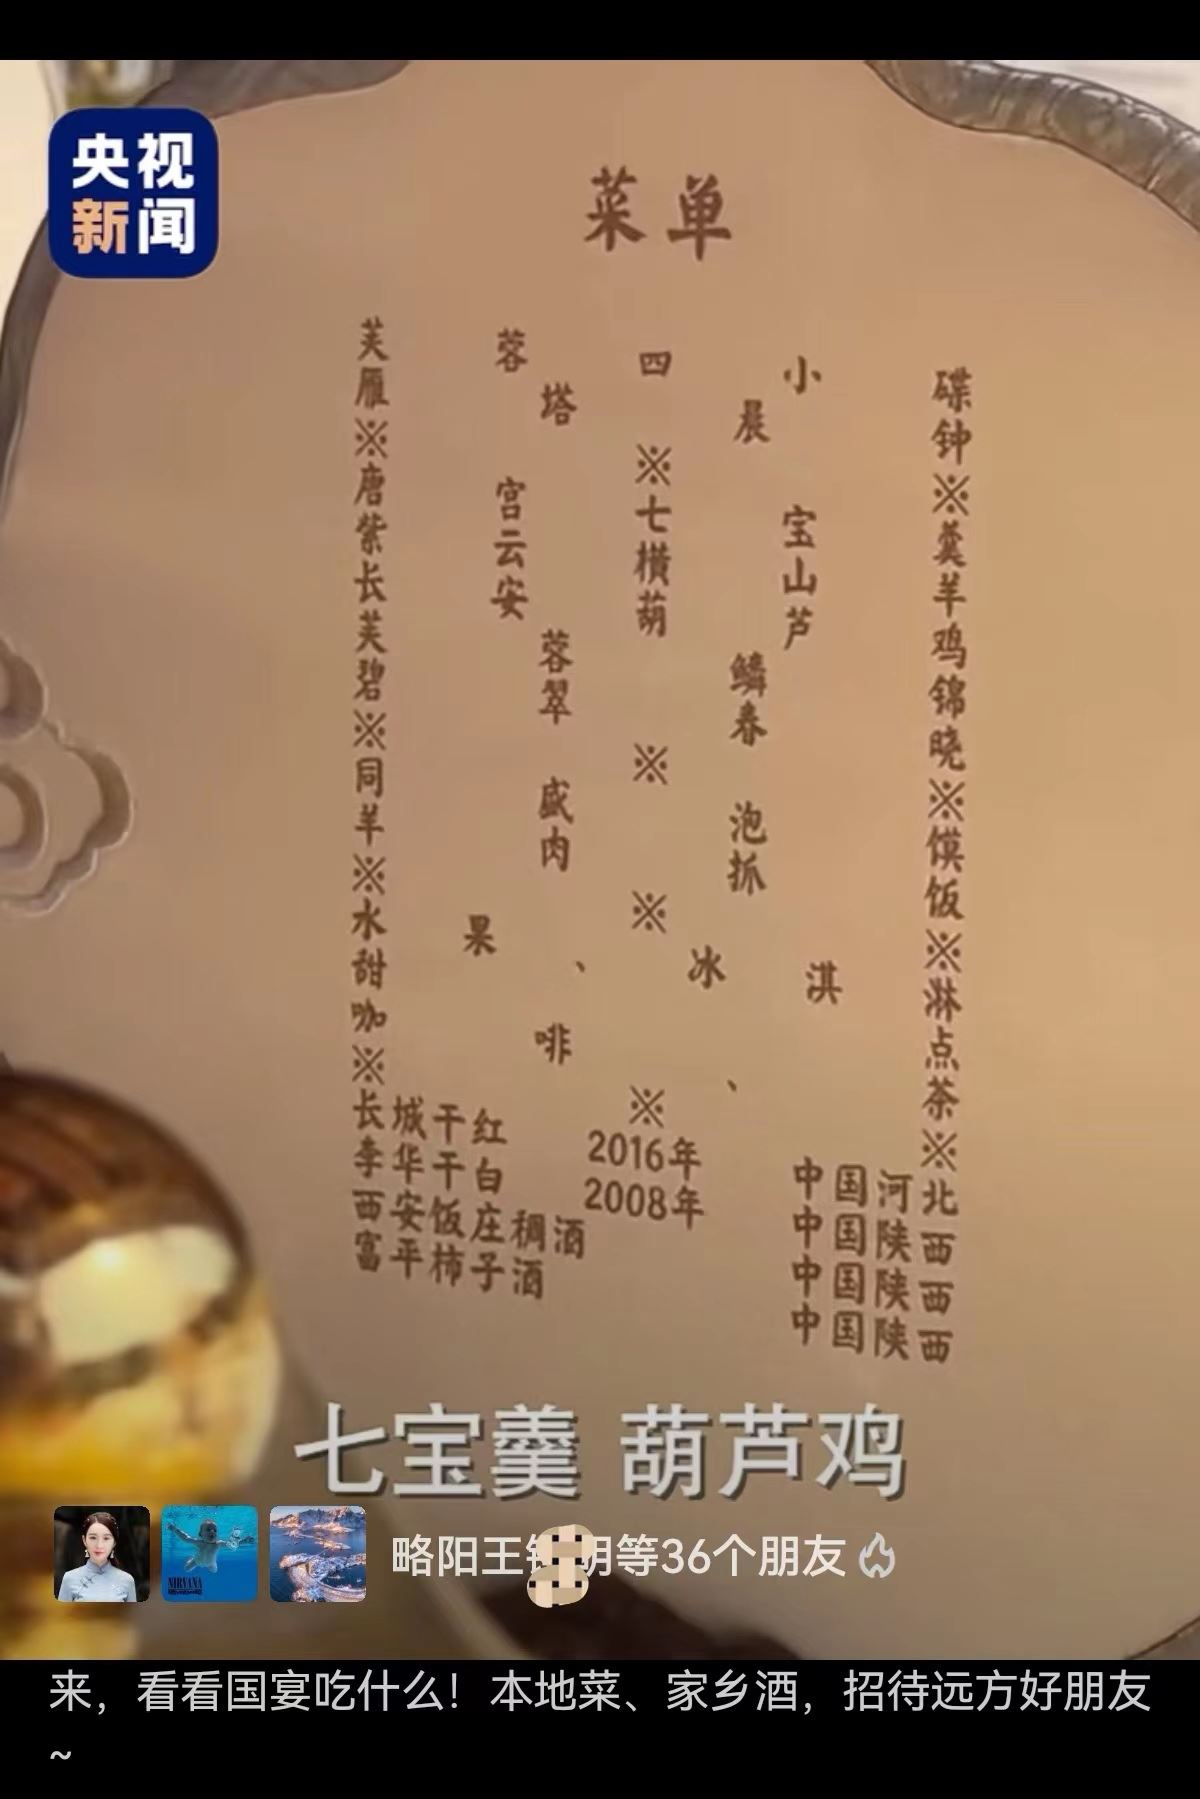 央视
新闻
菜单
芙蓉四小碟
雁塔晨钟
※※※
唐宫七宝羹
紫云横山羊
长安葫芦鸡
芙蓉鳞锦
碧翠春晓
※※※
同盛泡馍
羊肉抓饭
※※※
水果、冰淇淋
甜点
咖啡、茶
※※※
长城干红 2016年 中国河北
李华干白 2008年 中国陕西
西安饭庄稠酒 中国陕西
富平柿子酒 中国陕西
七宝羹 葫芦鸡
NIRVANA
略阳王 明等36个朋友
来，看看国宴吃什么！本地菜、家乡酒，招待远方好朋友
~